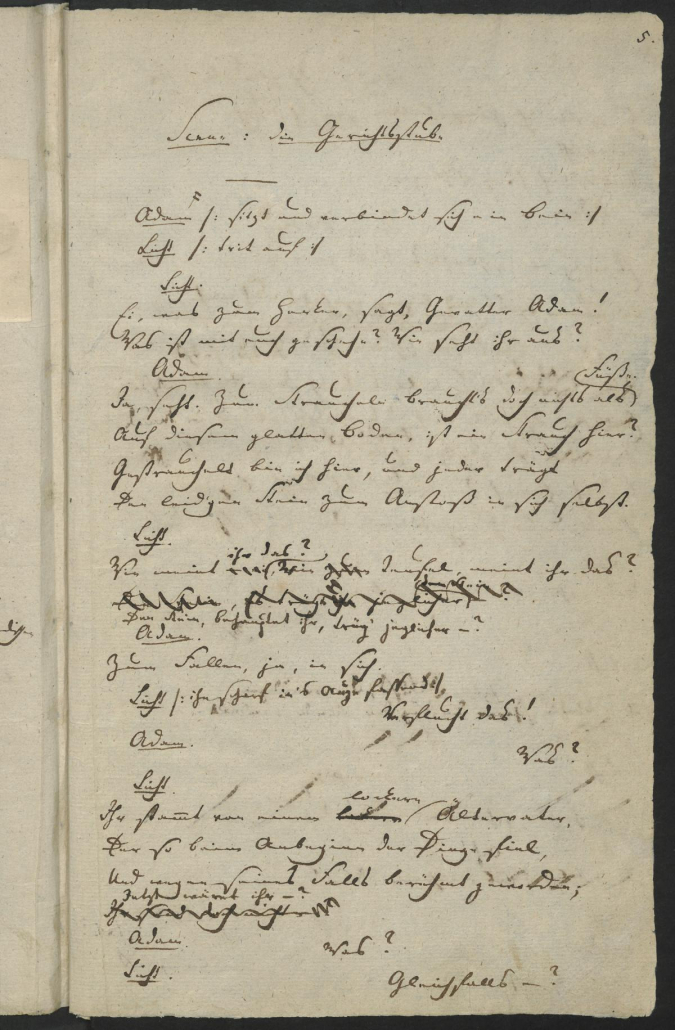 5.
Scene: die Gerichtsstube.
Adam /: sitzt und verbindet sich ein Bein :/
Licht /: trit auf :/
Licht.
Ei, was zum Henker, sagt, Gevatter Adam!
Was ist mit euch geschehn? Wie seht ihr aus?
Adam.
Ja, seht. Zum Straucheln braucht's doch nichts als Füße.
Auf diesem glatten Boden, ist ein Strauch hier?
Gestrauchelt bin ich hier, und jeder trägt
Den leidgen Stein zum Anstoß in sich selbst.
Licht.
ihr das?
Wie meint Teufel, meint ihr das?
Den Stein, behauptet ihr, trüg' jeglicher –?
Adam.
Zum Fallen, ja, in sich.
Licht /: ihn scharf in's Auge fassend :/
Verflucht das!
Adam.
Was?
Licht.
lockern
Ihr stammt von einem Ältervater,
Der so beim Anbeginn der Dinge fiel,
Und wegen seines Falls berühmt geworden;
Jetzt wäret ihr –?
Adam. Was?
Licht. Gleichfalls –?